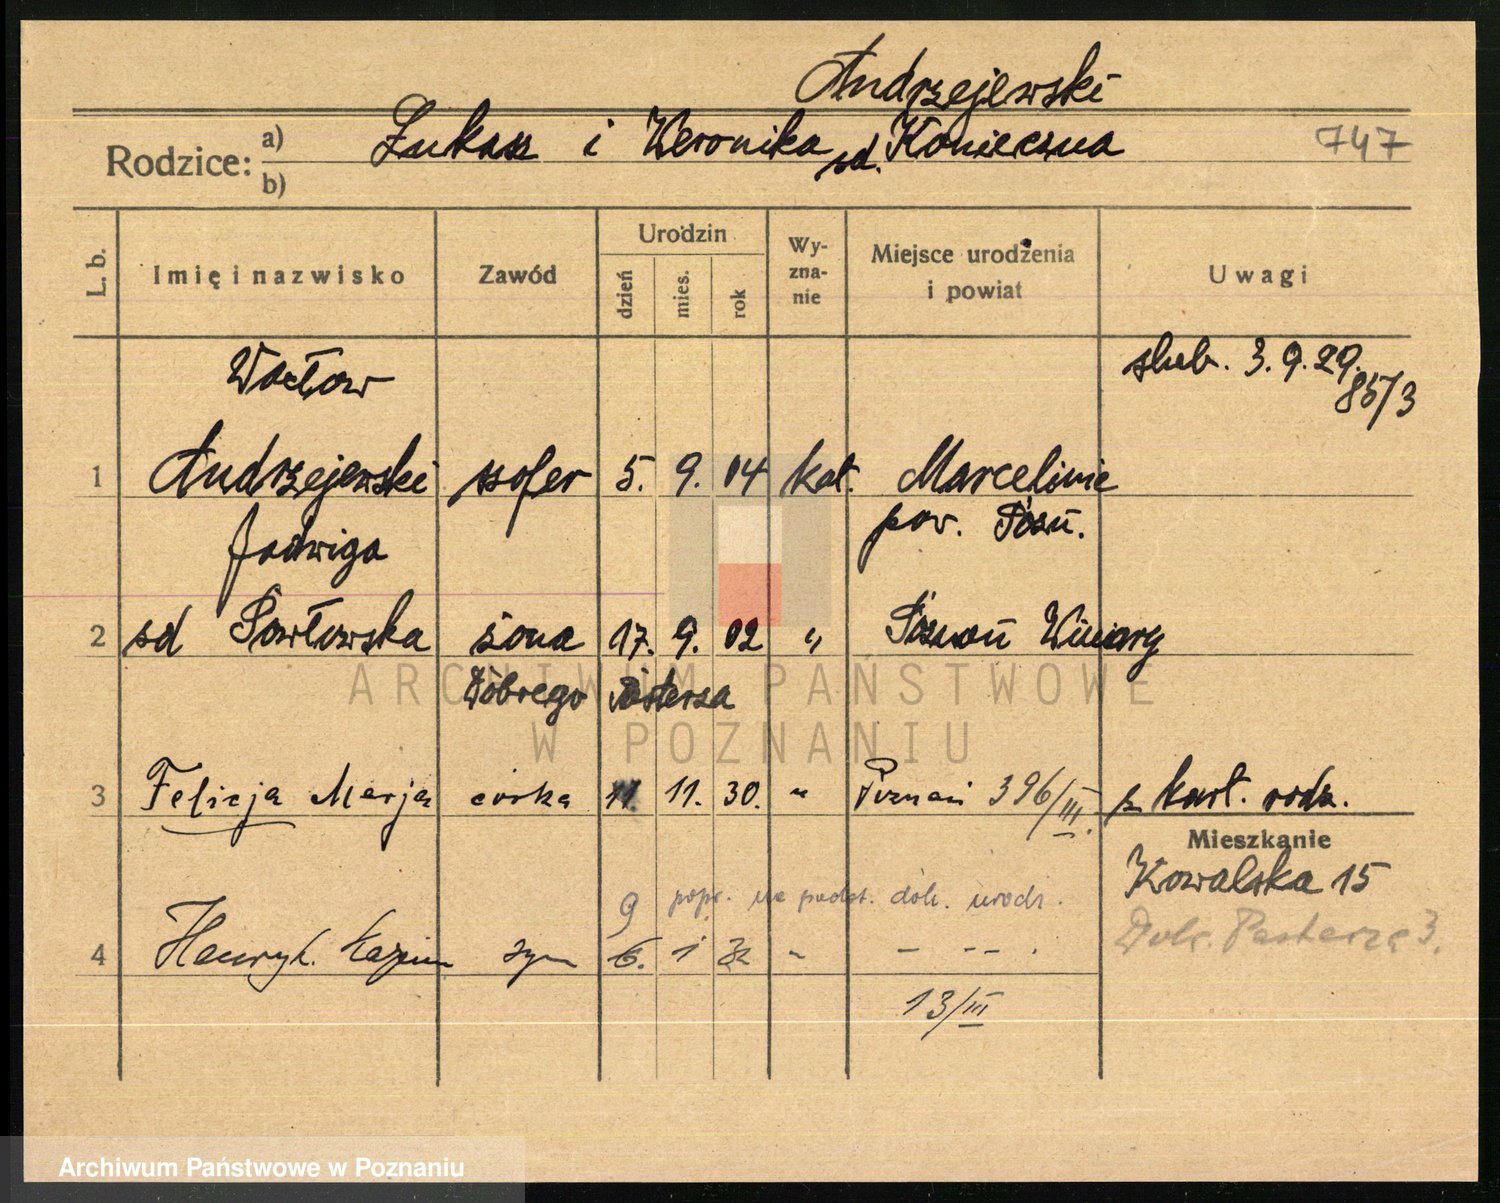 Andrzejewski
Rodzice: a) Łukasz i Weronika zd. Konieczna 747
b)
L. b. Imię i nazwisko Zawód Urodzin dzień mies. rok Wy-zna-nie Miejsce urodzenia i powiat Uwagi
Wacław ślub. 3.9.29.
85/3
1 Andrzejewski szofer 5. 9. 04 kat. Marcelinie
pow. Pozn.
Jadwiga
2 zd Pawłowska żona 17. 9. 02 " Poznań Winiary
Dobrego Pasterza
3 Felicja Marja córka 11. 11. 30. " Poznań 396/III. z kart. rodz.
Mieszkanie
Kowalska 15
9 popr. na podst. dok. urodz.
Dobr. Pasterza 3.
4 Henryk Kazim syn 6. 1 32 " - -- .
13/III
ARCHIWUM PAŃSTWOWE
W POZNANIU
Archiwum Państwowe w Poznaniu